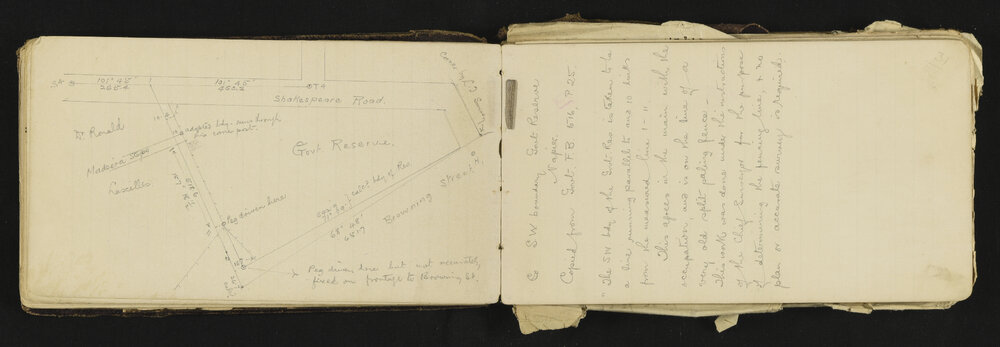 101° 45'
265.4
101° 45'
462.2
OT4
Shakespeare Road.
Dr Ronald
adopted bdy. runs through
this corner post.
Madeira Steps
Lascelles
Govt. Reserve.
Peg driven here
calcd bdy of Res.
68° 48'
681.7
Browning Street
Peg driven here but not accurately
fixed on frontage to Browning St.
SW boundary Govt Reserve
Napier.
Copied from Govt. F.B. 516, P. 25.
"The SW bdy of the Govt Res is taken to be
a line running parallel to and 10 links
from the measured line 1-1".
This agrees in the main with the
occupation, and is on the line of a
very old split paling fence-
This work was done under the instructions
of the Chief Surveyor for the purpose
of determining the fencing line, & no
plan or accurate survey is required.